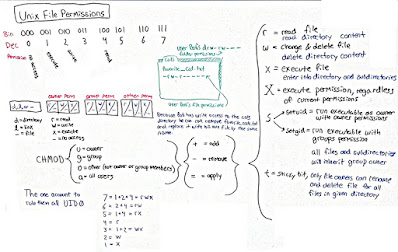 Unix File Permissions
Bin 000 001 010 011 100 101 110 111
Dec 0 1 2 3 4 5 6 7
no access
execute
write
read
User Bob's
Cats
Favorite_Cat.txt
User Bob's file permissions
Because Bob has write access to the cats
directory he can remove favorite_cat.txt
and replace it with his own file by the same
name
owner perm group perm other perm
d = directory
l = link
- = file
r = read
w = write
x = execute
- = no access
CHMOD
u = owner
g = group
o = other (not owner or group members)
a = all users
+ = add
- = remove
= = apply
r = read file
read directory content
w = change & delete file
delete directory content
x = execute file
enter into directory and subdirectories
X = execute permission, regardless
of current permissions
s
setuid = run executable as owner
with owner permissions
setgid = run executable with
groups permission
all files and subdirectories
will inherit group owner
t = sticky bit, only file owners can rename
and delete file for all
files in given directory
The one account to
rule them all UID 0
7 = 1+2+4 = rwx
6 = 2+4 = rw
5 = 1+4 = rx
4 = r
3 = 1+2 = wx
2 = w
1 = x